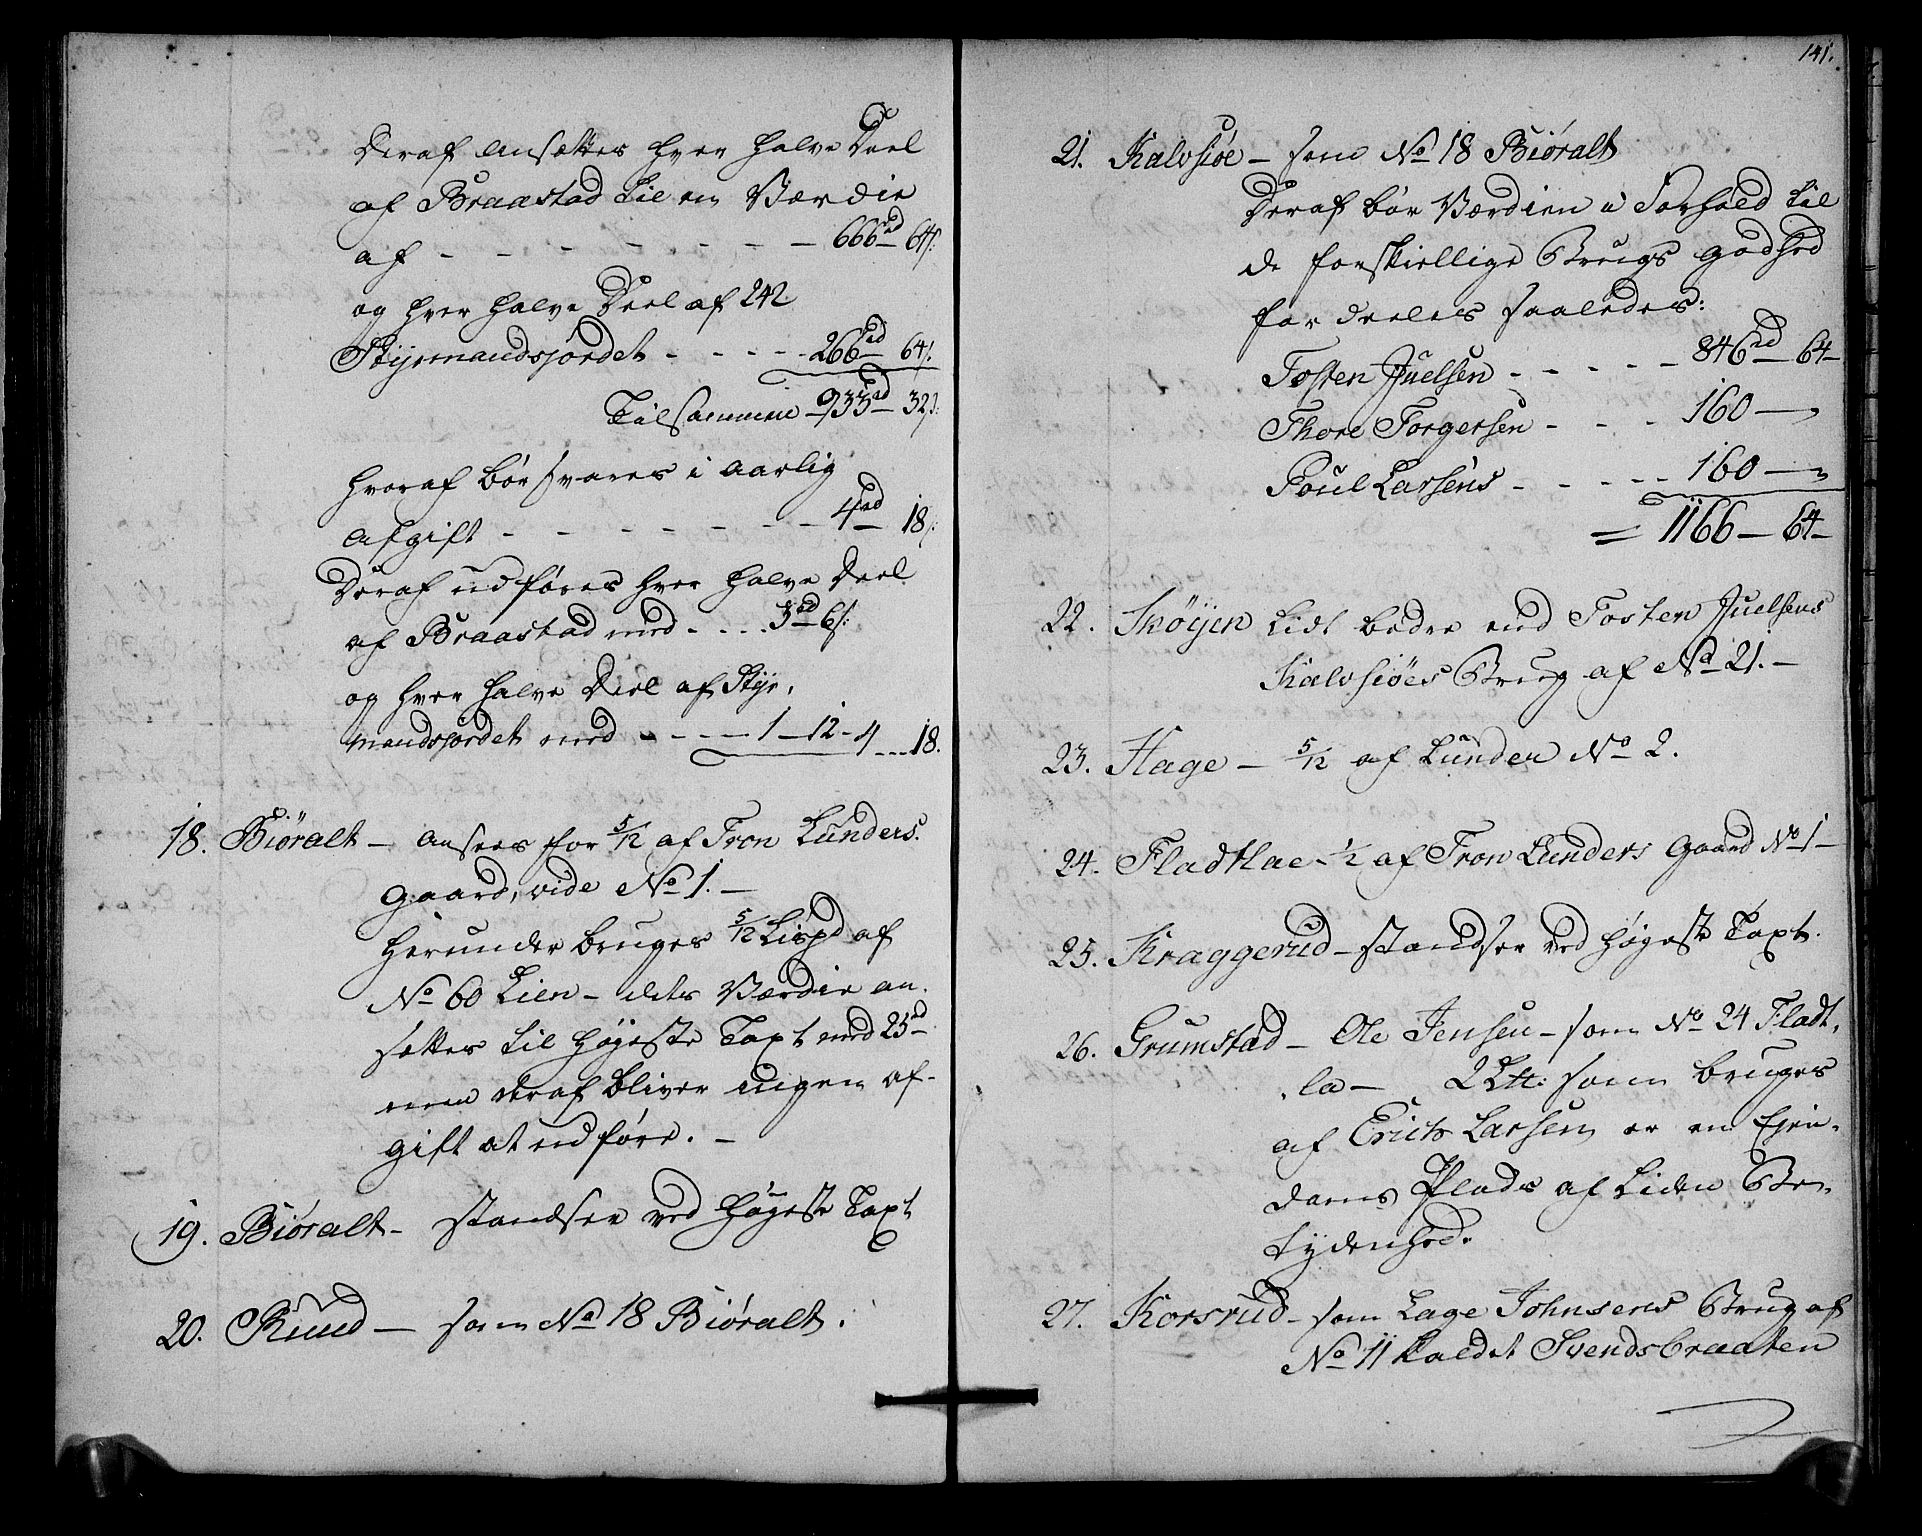 Deraf ansættes hver halve Deel
af Braastad til en Værdie
af - - - - - - - 666rd 64s.
og hver halve Deel af 242
Styrmandsjordet - - - - - 266rd 64s.
Tilsammen 933rd 32s.
hvoraf bør svares i aarlig
afgift - - - - - - - 4rd 18s.
Deraf udføres hver halve Deel
af Braastad med - - - - 3rd 6s.
og hver halve Deel af Styr,
mandsjordet med - - - - 1 - 12 - 4 - - - 18.
18. Biøralt - ansees for 5/12 af Tron Lunders
Gaard, vide No 1. -
Herunder bruges 5/12 Lispd af
No 60 Lien - dets Værdie an,
sættes til høyeste Taxt med 25rd
men deraf bliver ingen af-
gift at udføre. -
19. Biøralt - standser ved høyeste Taxt
20. Ruud - som No 18 Biøralt.
141.
21. Kalvsiøe - som No 18 Biøralt
Deraf bør Værdien i Forhold til
de forskiellige Brugs godhed
fordeeles saaledes:
Tosten Juelsen - - - - - 846rd 64 -
Thore Torgersen - - - 160 - "
Poul Larsens - - - - - 160 - "
= 1166 - 64 -
22. Skøyen lidt bedre end Tosten Juelsens
Kalvsiøes Brug af No 21. -
23. Hage - 5/12 af Lunder No 2.
24. Fladtlae - 1/2 af Tron Lunders Gaard No 1 -
25. Kraggerud - standser ved høyeste Taxt.
26. Grumstad - Ole Jensen - som No 24 Fladt,
la - 2 L℔: som bruges
af Erich Larsen er en Eien,
doms Plads af liden Be,
tydenhed.
27. Korsrud - som Lage Johnsens Brug af
No 11 kaldet Svendsbraaten